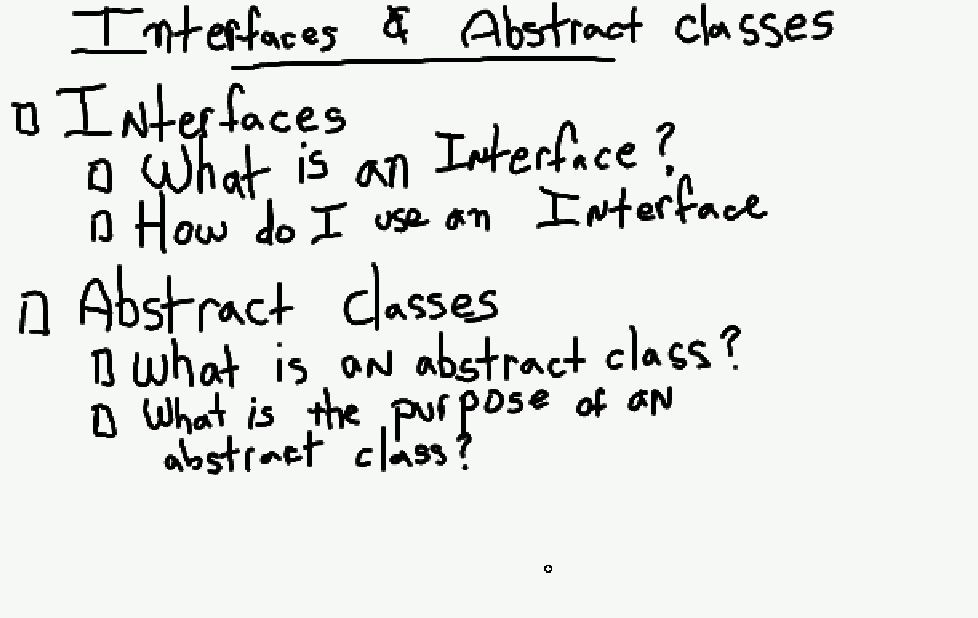 Interfaces & Abstract classes
Interfaces
What is an Interface?
How do I use an Interface
Abstract classes
What is an abstract class?
What is the purpose of an
abstract class?